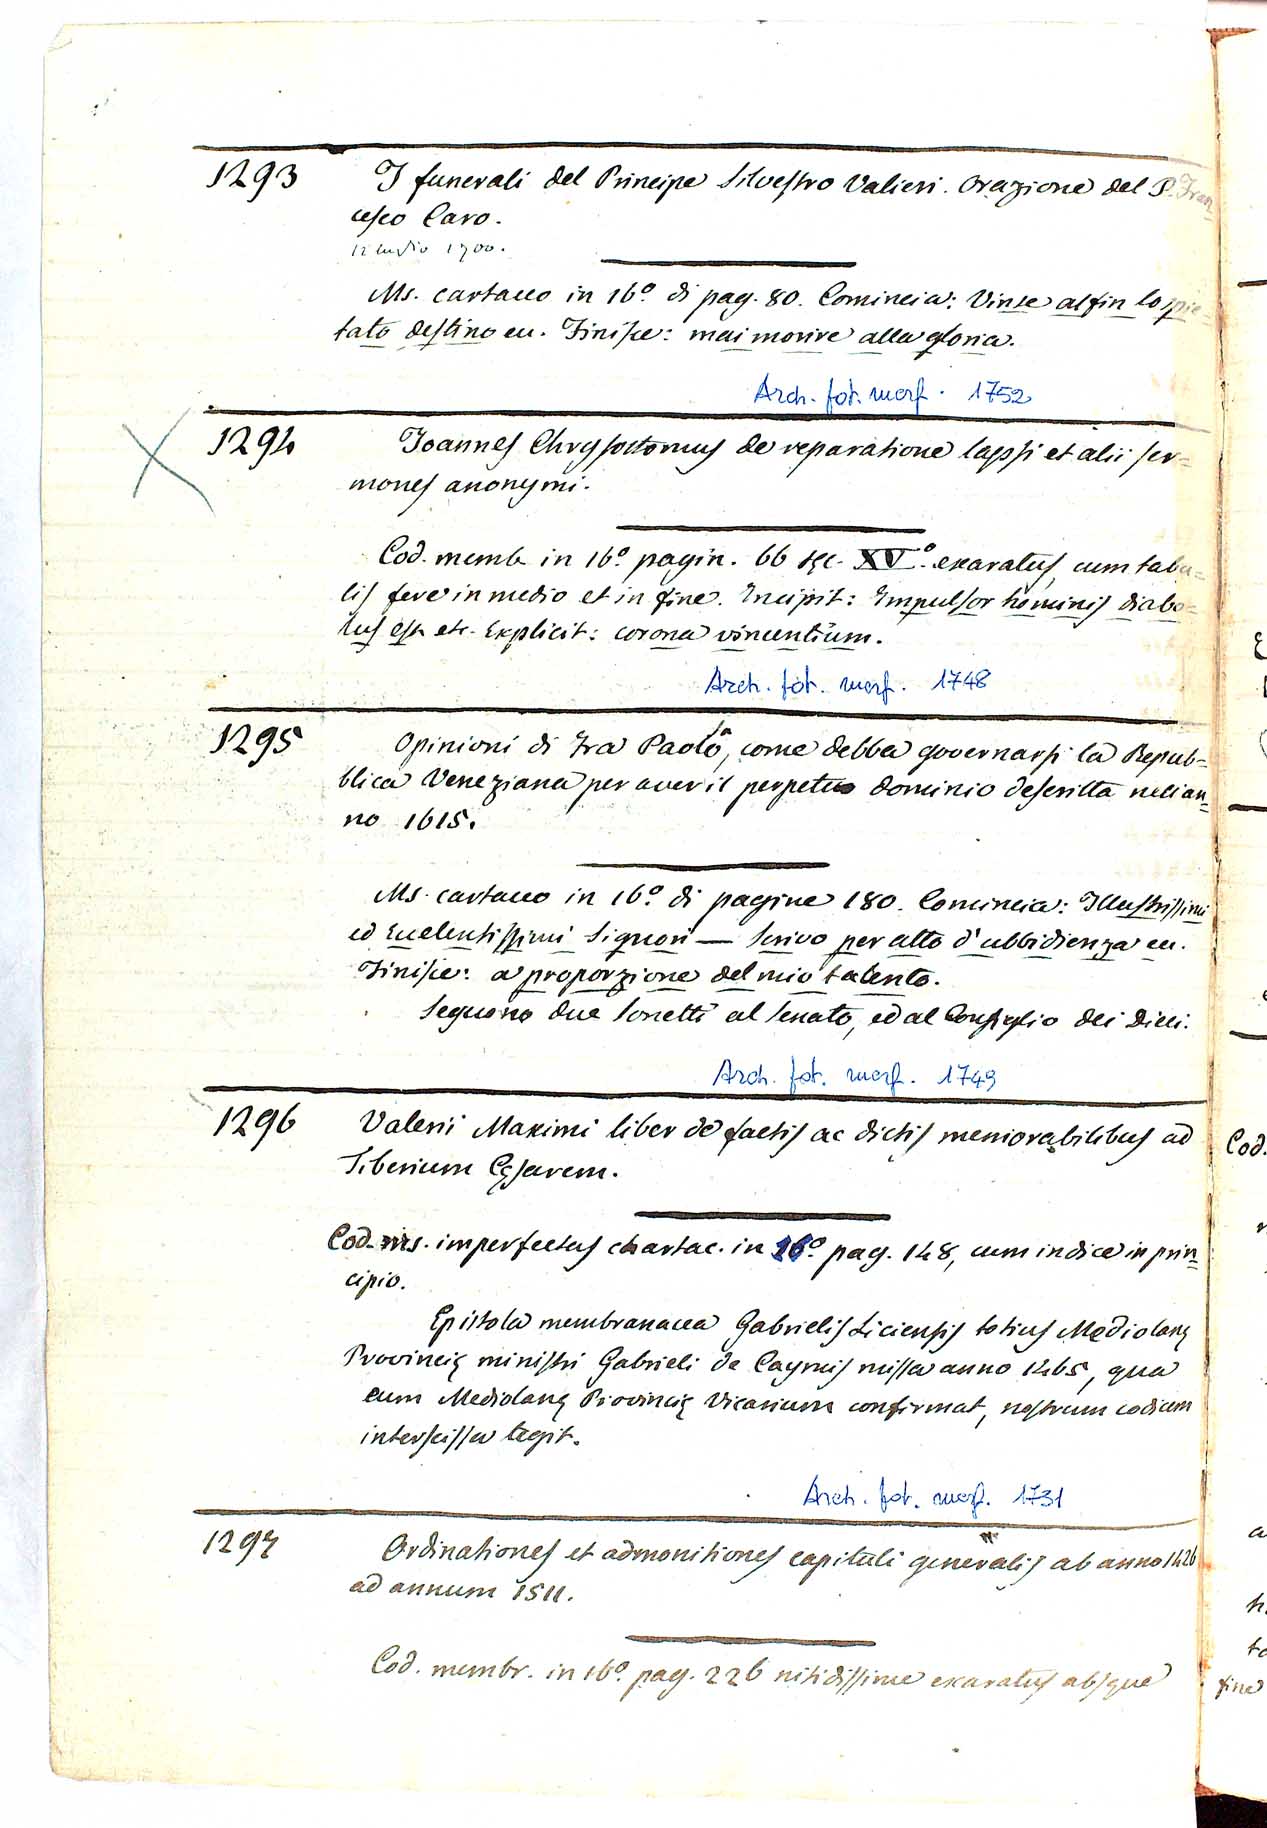 1293 I funerali del Principe Silvestro Valieri. Orazione del P. Fran=
cesco Caro.
12 luglio 1700.
Ms. cartaceo in 16º. di pag. 80. Comincia: Vinse alfin lo spie=
tato destino ec. Finisce: mai morire alla gloria.
Arch. fot. morf. 1752
1294 Joannes Chrysostomus de reparatione lapsi et alii ser=
mones anonymi.
Cod. memb. in 16º. pagin. 66 sæc. XVº. exaratus, cum tabu=
lis fere in medio et in fine. Incipit: Impulsor hominis diabo=
lus est etc. Explicit: corona vincentium.
Arch. fot. morf. 1748
1295 Opinioni di Fra Paolo, come debba governarsi la Repub=
blica Veneziana per aver il perpetuo dominio descritta nell'an=
no 1615.
Ms. cartaceo in 16º. di pagine 180. Comincia: Illustrissimi
ed Eccelentissimi Signori — Scrivo per atto d'ubbidienza ec.
Finisce: a proporzione del mio talento.
Seguono due Sonetti al Senato, ed al Consiglio dei Dieci.
Arch. fot. morf. 1749
1296 Valerii Maximi liber de factis ac dictis memorabilibus ad
Tiberium Cęsarem.
Cod. ms. imperfectus chartac. in 16º. pag. 148, cum indice in prin=
cipio.
Epistola membranacea Gabrielis Liciensis totius Mediolanę
Provincię ministri Gabrieli de Caymis missa anno 1465, qua
eum Mediolanę Provincię Vicarium confirmat, nostrum codicem
interscissa tegit.
Arch. fot. morf. 1731
1297 Ordinationes et admonitiones capituli generalis ab anno 1426
ad annum 1511.
Cod. membr. in 16º. pag. 226 nitidissime exaratus absque
Cod.
fine